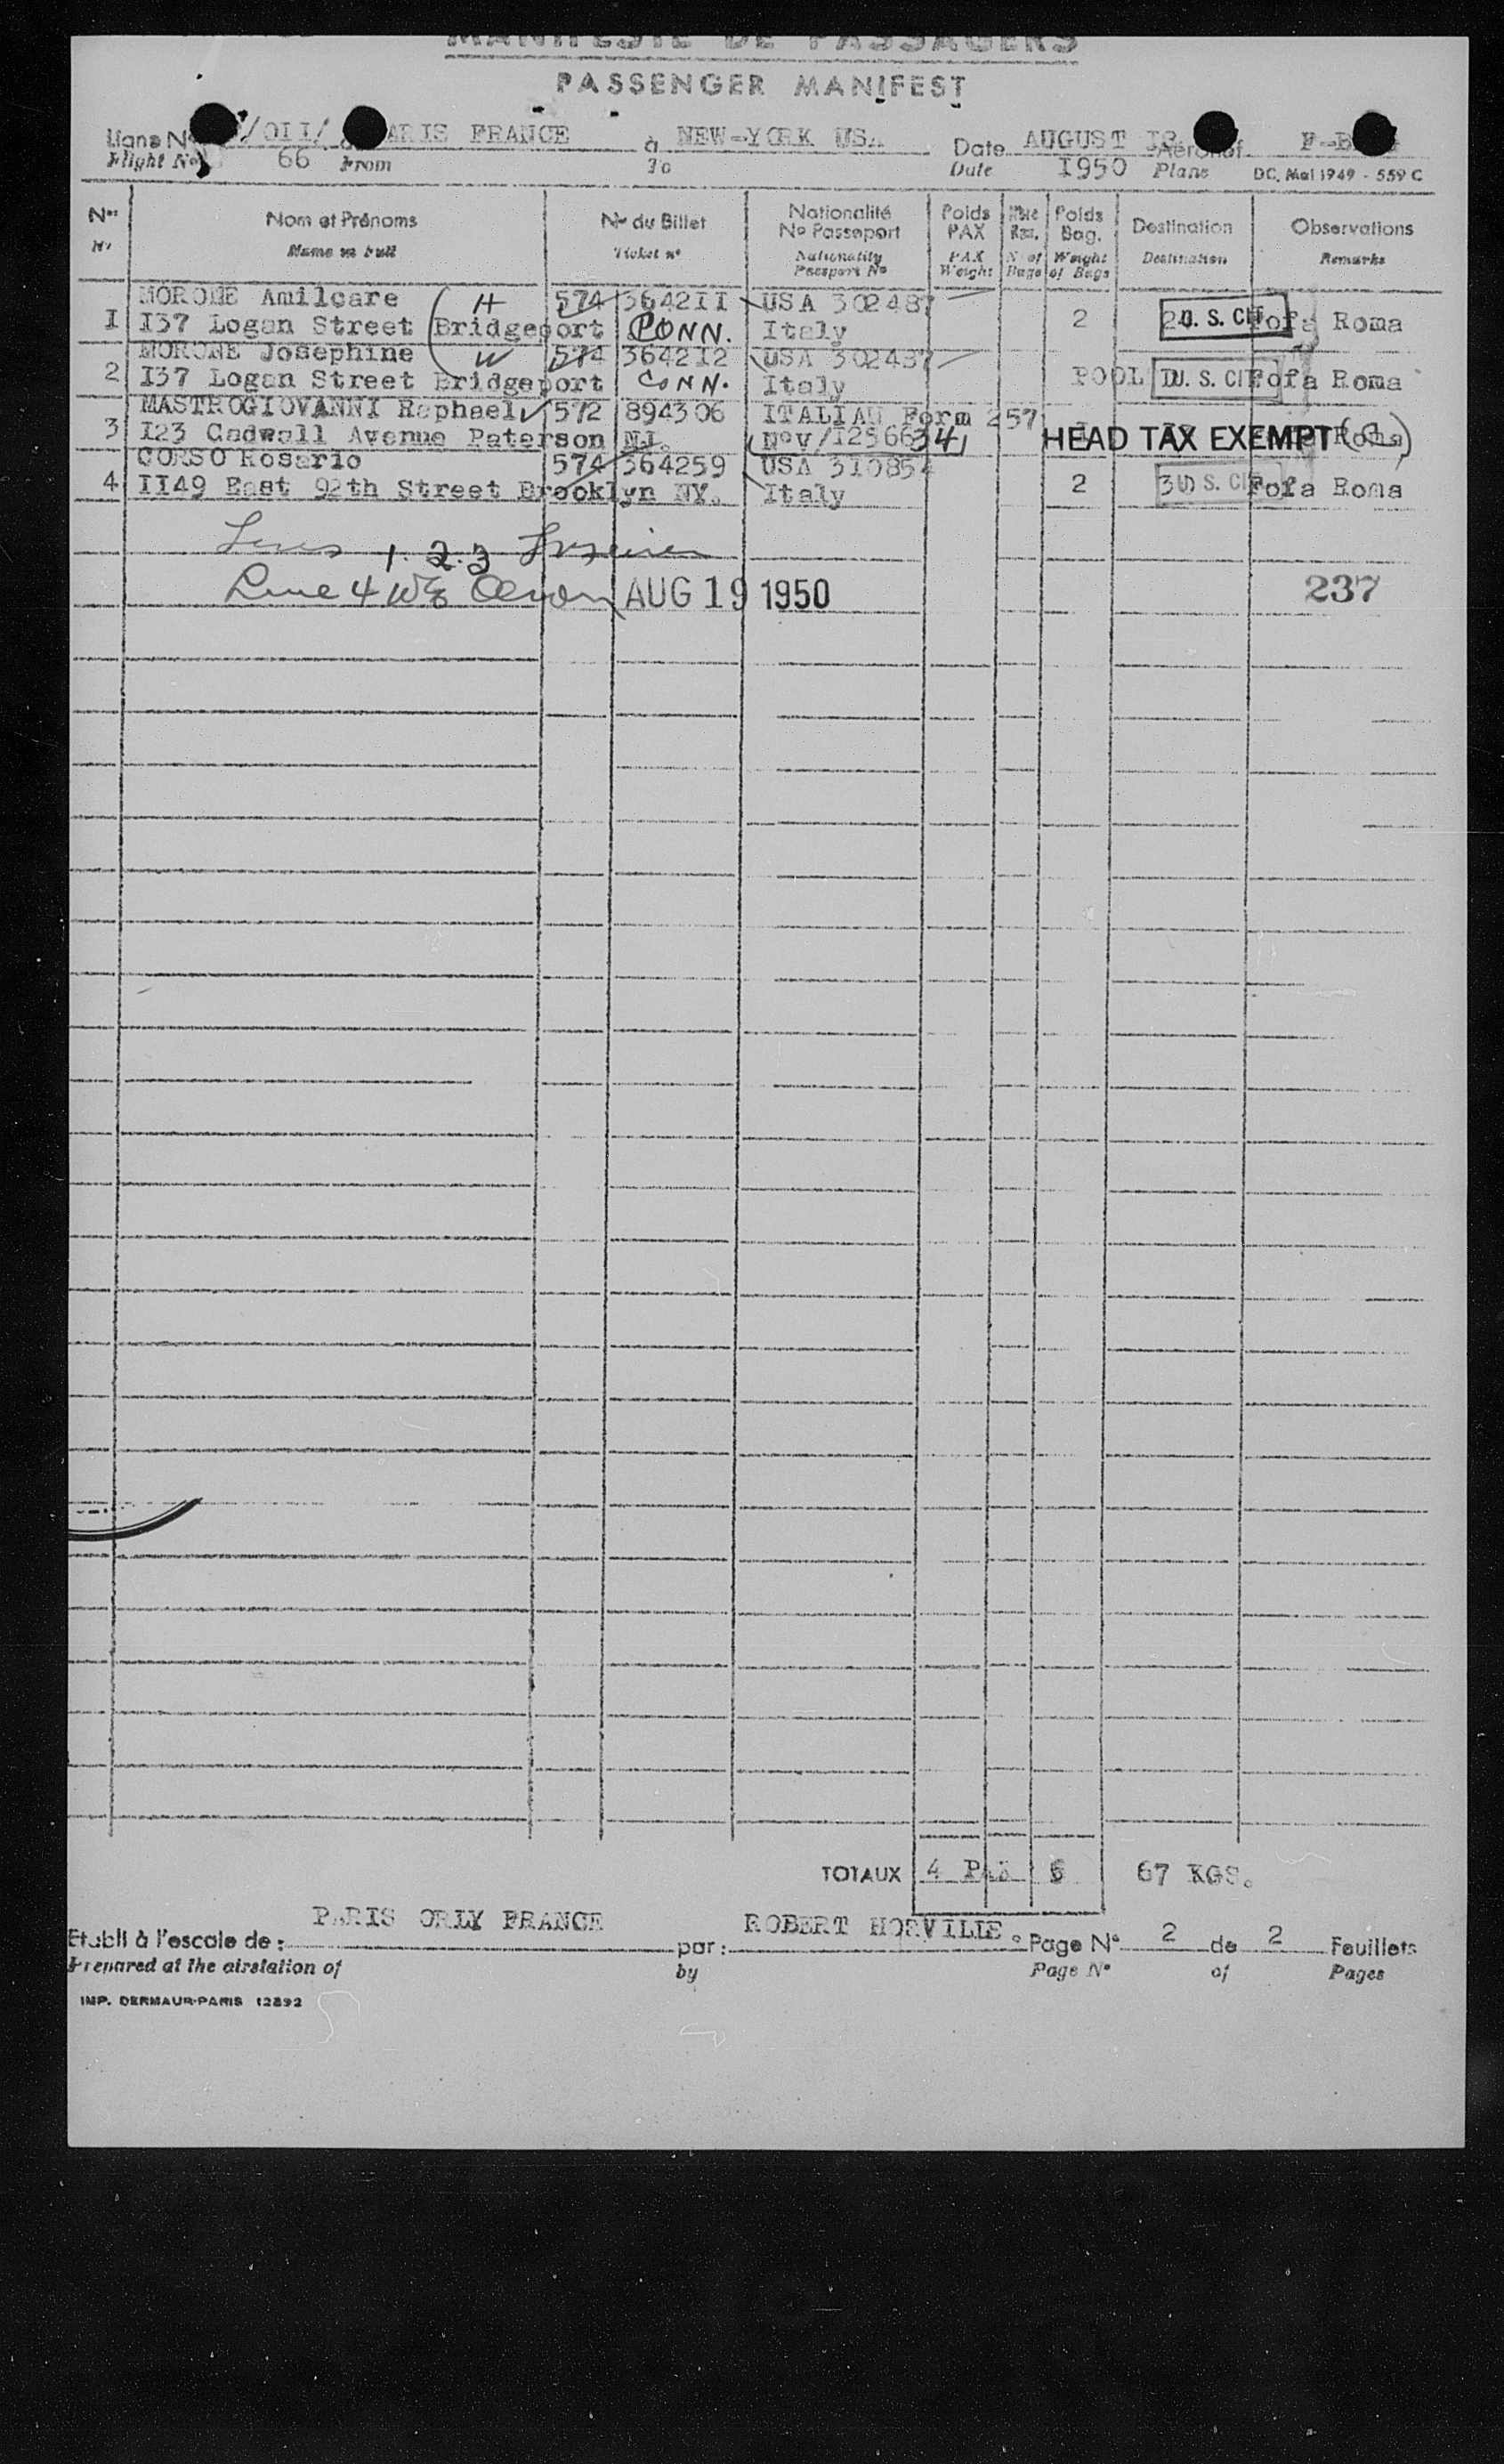 MANIFESTE DE PASSAGERS
PASSENGER MANIFEST
Ligne N° /OII/ ARIS FRANCE à NEW-YORK USA Date AUGUST Aéronef F-B
Flight N° 66 From To Date 1950 Plane DC. Mai 1949 - 559 C
N° Nom et Prénoms N° du Billet Nationalité N° Passeport Poids PAX Nbre Poids Bag. Destination Observations
N° Name in full Ticket n° Nationality Passport N° PAX Weight N of Bags Weight of Bags Destination Remarks
MORONE Amilcare H 574 364211 USA 302487
I I37 Logan Street Bridgeport CONN. Italy 2 U. S. CIT Fofa Roma
MORONE Josephine W 574 364212 USA 302487
2 I37 Logan Street Bridgeport CONN. Italy POOL U. S. CIT Fofa Roma
MASTROGIOVANNI Raphael 572 894306 ITALIAN Form 257
3 I23 Cadwall Avenue Paterson NJ. HEAD TAX EXEMPT Roma
CORSO Rosario 574 364259 USA 310854
4 II49 East 92th Street Brooklyn NY. Italy 2 U S. CIT Fofa Roma
Lines 1. 2. 3
Line 4 AUG 19 1950 237
TOTAUX 4 PAX 67 KGS.
Etabli à l'escale de : PARIS ORLY FRANCE par : ROBERT HORVILLE Page N° 2 de 2 Feuillets
Prepared at the airstation of by Page N° of Pages
IMP. DERMAUR-PARIS 12892